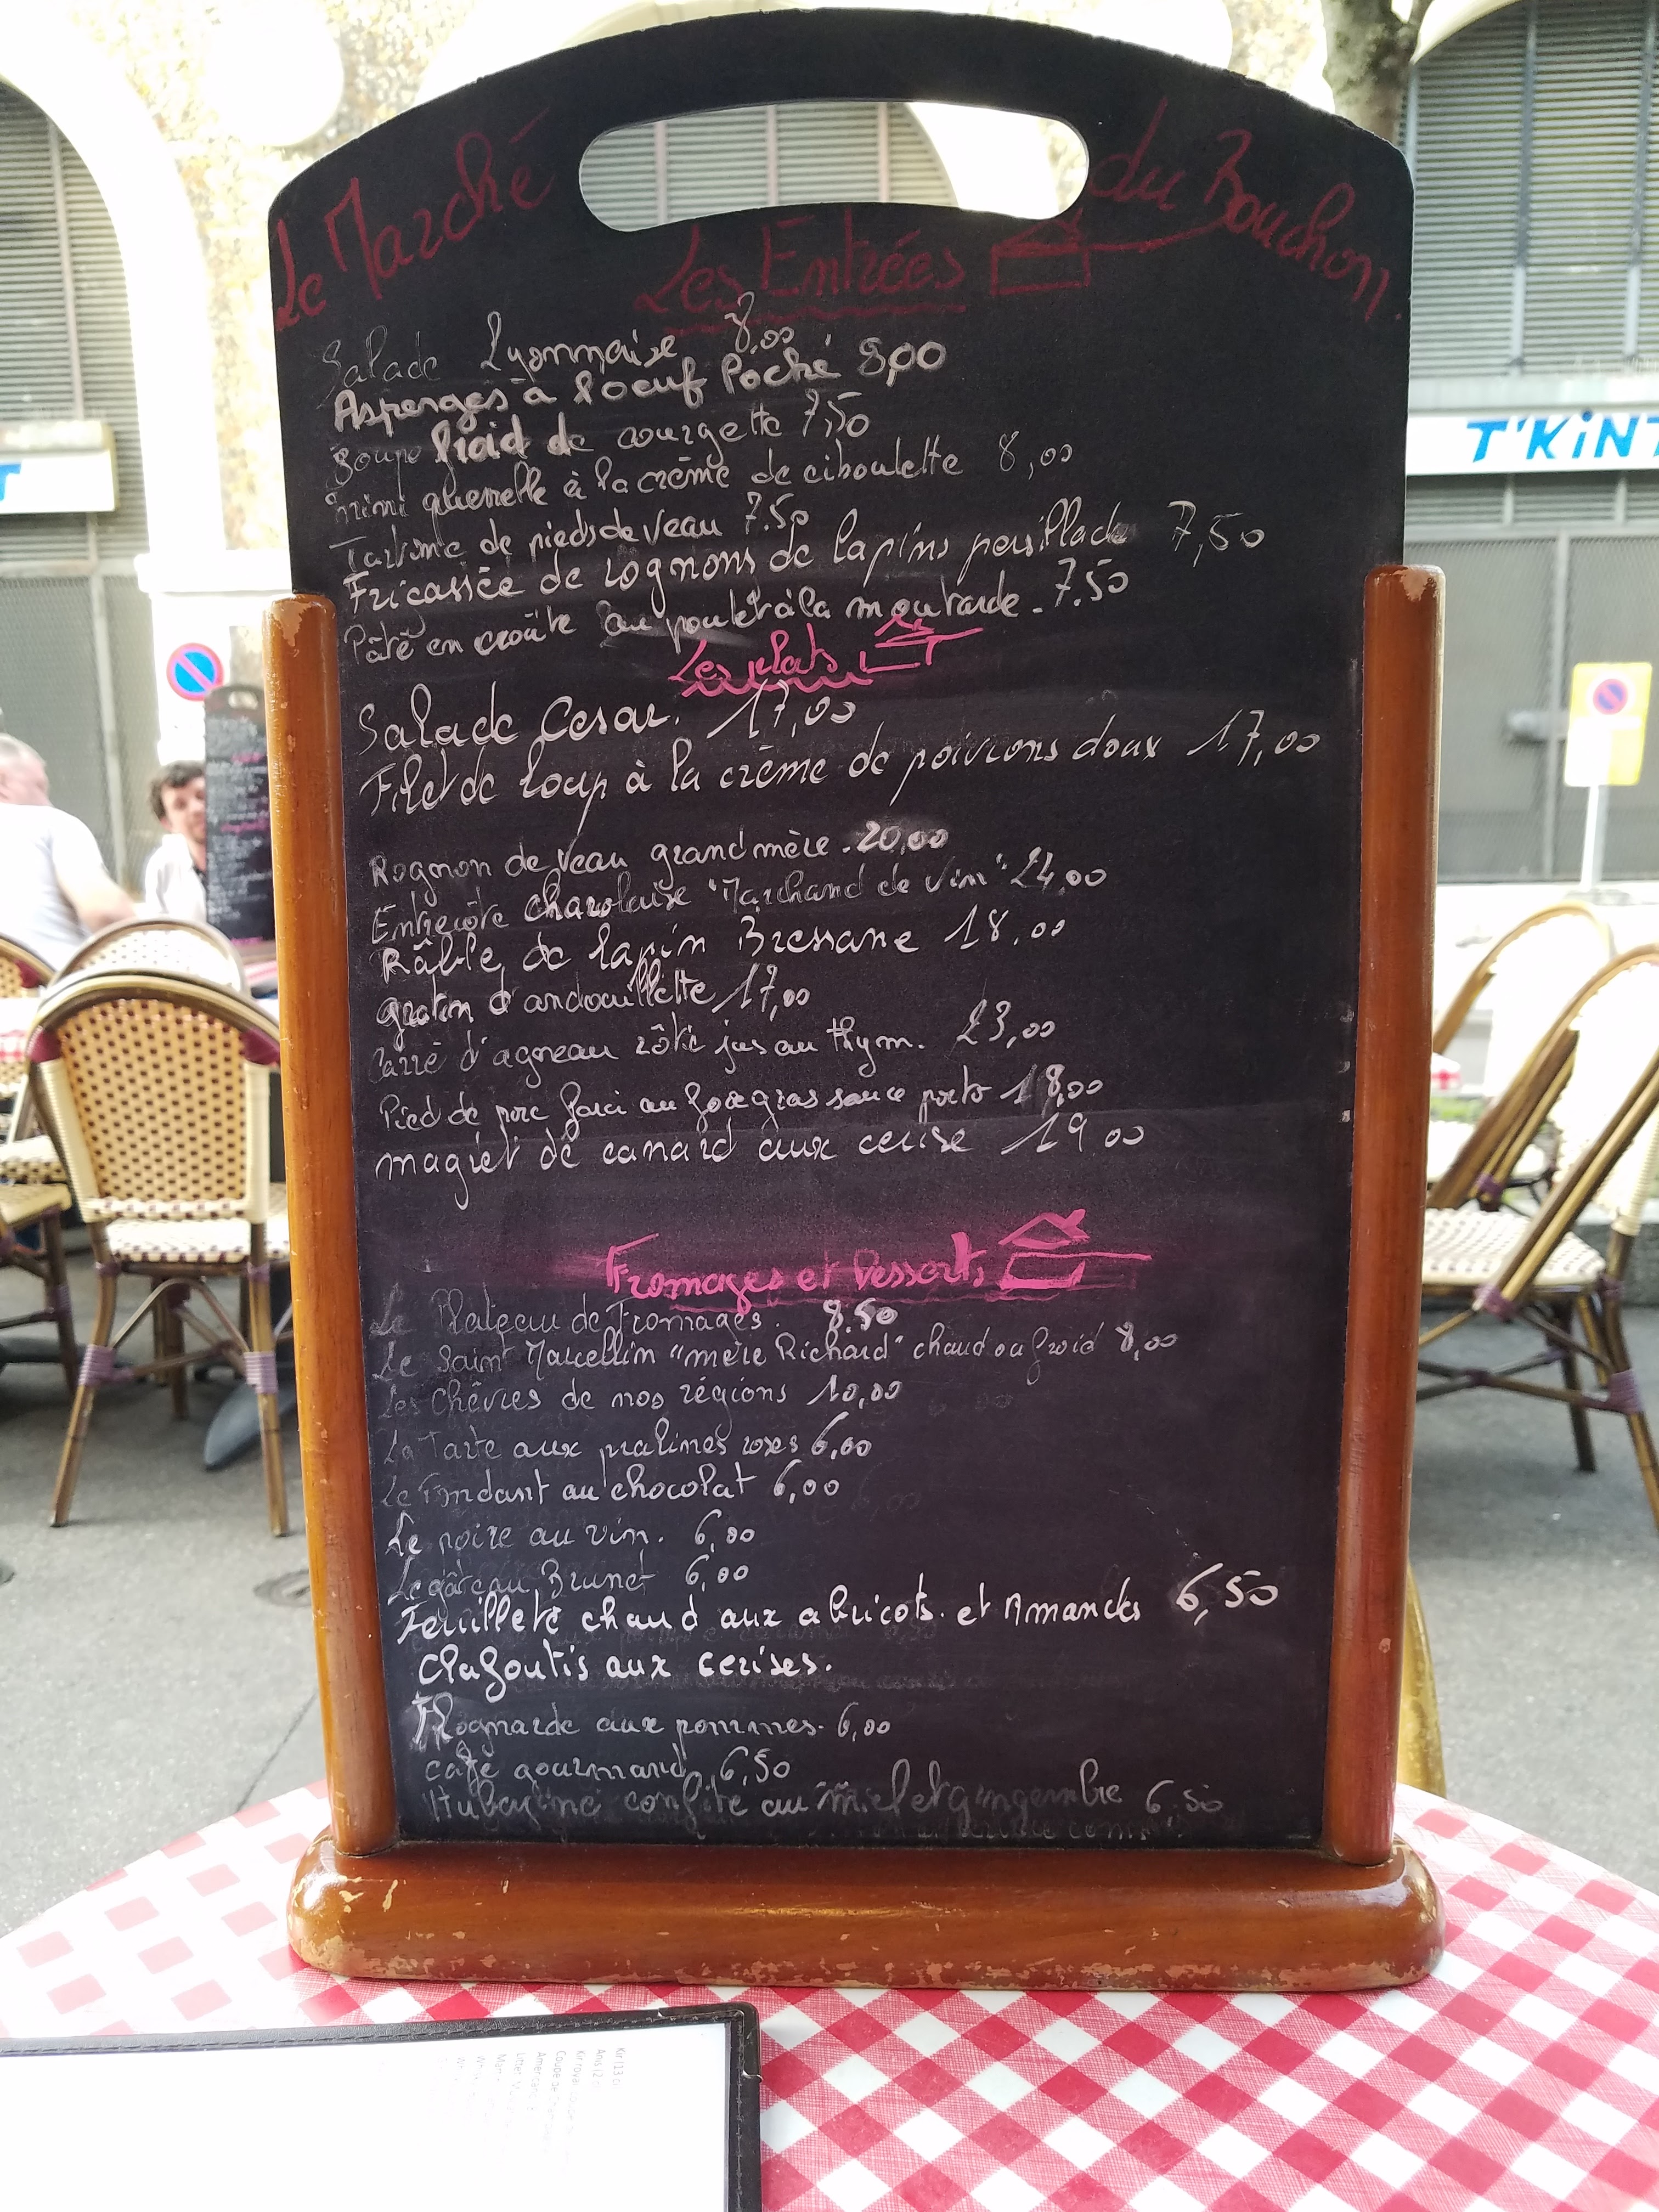 Le Marché du Bouchon.
Les Entrées
Salade Lyonnaise 8,00
Asperges à l'oeuf Poché 8,00
Soupe froid de courgette 7,50
mini quenelle à la crème de ciboulette 8,00
de pieds de veau 7.50
Fricassée de rognons de lapins persillade 7,50
Pâté en croûte au poulet à la moutarde - 7.50
Les plats
Salade Cesar. 17,00
Filet de loup à la crème de poivrons doux 17,00
Rognon de veau grand mère . 20,00
Entrecôte charolaise "Marchand de vin" 24,00
Râble de lapin Bressane 18,00
gratin d'andouillette 17,00
Carré d'agneau rôti jus au thym. 23,00
Pied de porc farci au foie gras sauce porto 18,00
magret de canard aux cerise 19.00
Fromages et Desserts
Le Plateau de Fromages. 8.50
Le Saint Marcellin "mère Richard" chaud ou froid 8,00
Les Chèvres de nos régions 10,00
La Tarte aux pralines roses 6,00
Le Fondant au chocolat 6,00
Le poire au vin. 6,00
Le gâteau Brunet 6,00
Feuilleté chaud aux abricots. et Amandes 6,50
Clafoutis aux cerises.
Flognarde aux pommes - 6,00
café gourmand 6,50
confite au miel et gingembre 6.50
T'KiNT
T